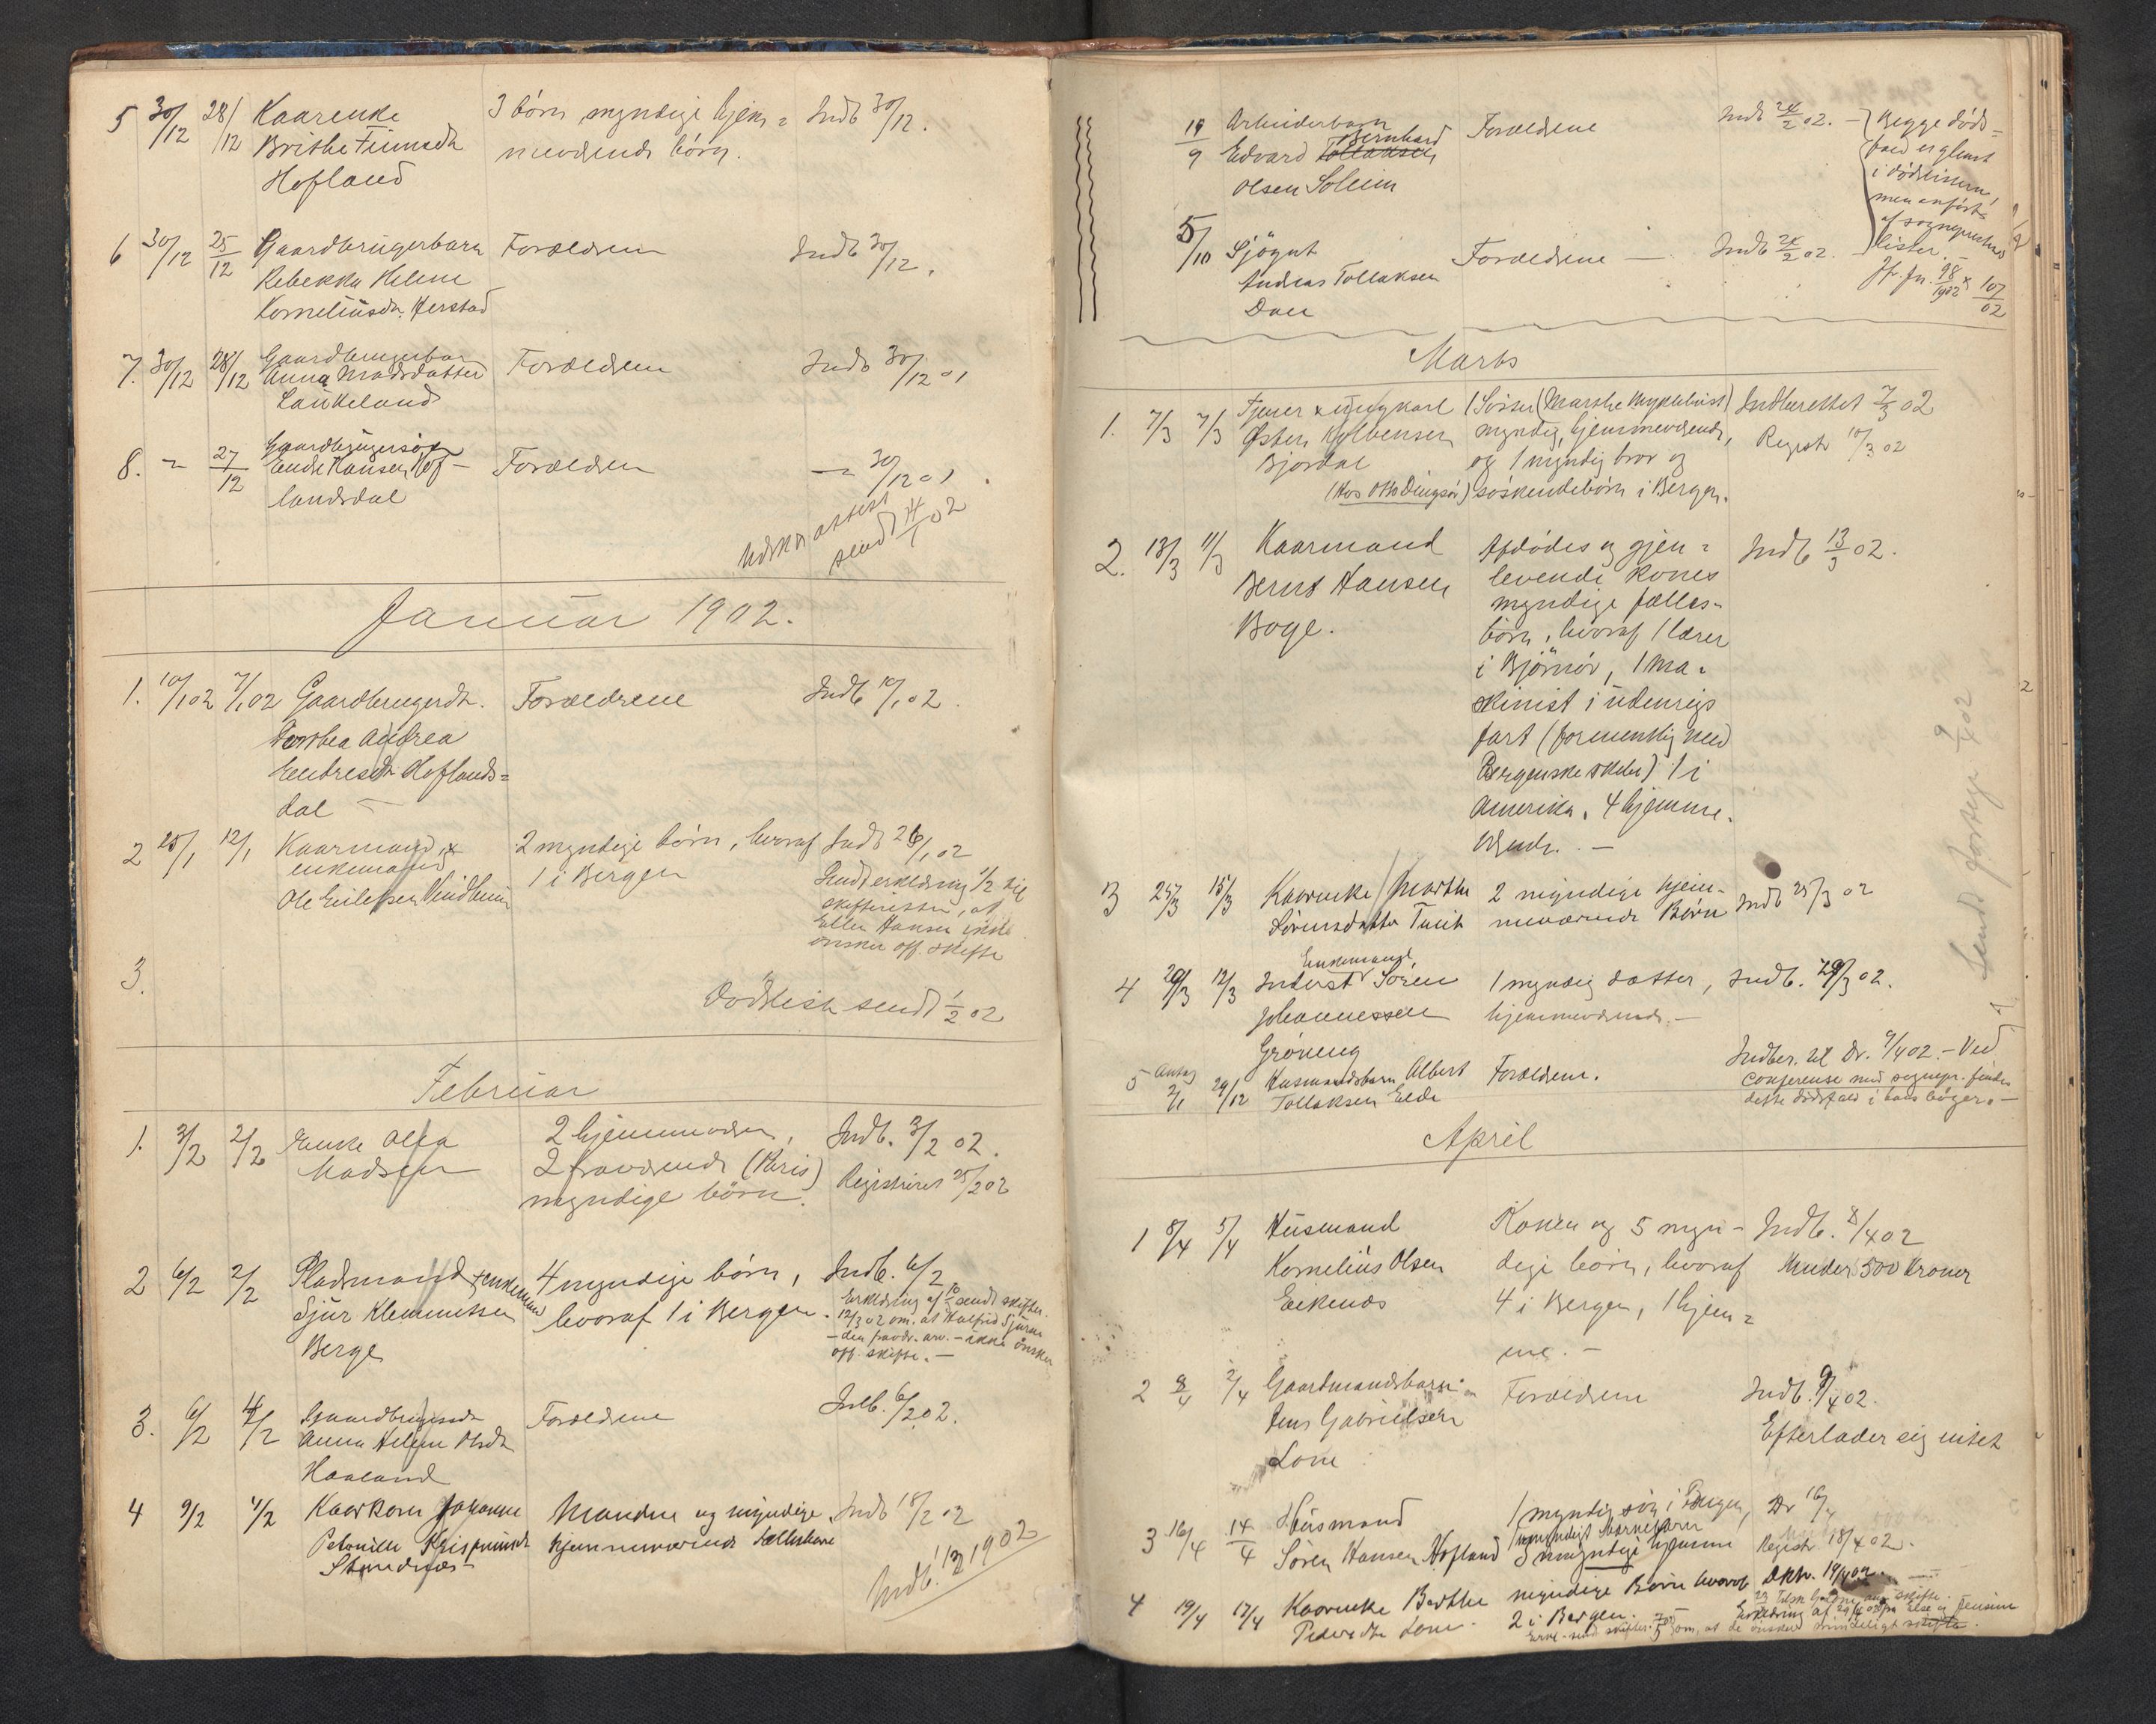 5 30/12 28/12 Kaarenke 3 börn myndige hjem= Indb 30/12.
Brithe Finnsdtr meværende börn.
Hofland
6 30/12 25/12 Gaardbrugerbarn Forældrene Indb 30/12.
Rebekka Helene
Korneliusdr. Herstad
7. 30/12 28/12 Gaardbrugerbar Forældrene Indb 30/12 01
Anna Madsdatter
Laukeland
8. " 27/12 Gaardbrugersön Forældrene " 30/12 01.
Endre Hansen Hof-
landsdal
attest
sendt 14/1 02
Januar 1902.
1. 10/1 02 7/1 02 Gaardbrugerdtr. Forældrene Indb 10/1 02.
Dorthea Andrea
Endresdtr Hoflands=
dal
2 25/1 12/1 Kaarmand & 2 myndige börn, hvoraf Indb 26/1 02
enkemand 1 i Bergen
Ole Erilksen
Sendt erklæring 1/2 til
skifteretten, at
Ellen Hansen ikke
önsker off. skifte
3.
Dödsliste sendt 1/2 02
Februar
1. 3/2 2/2 Enke Olea 2 hjemmeværn, Indb. 3/2 02.
Madsen 2 fraværende (Kris) Registreret 25/2 02
myndige börn.
2 6/2 2/2 Pladsmand & enkemand 4 myndige börn, Indb. 6/2
Sjur Klemmetsen hvoraf 1 i Bergen.
Berge
Erklæring af 10/ sendt skifter.
12/3 02 om, at Halfrid Sjursn
- den fravær. arv. - ikke önsker
off. skifte. -
3. 6/2 4/2 Gaardbrugersdtr Forældrene Indb. 6/2 02.
Anna Helene Olsdtr
Haaland
4 9/2 4/2 Kaarkone Johanne Manden og myndige Indb 18/2 02
Petronille hjemmeværende Fællesbørn
Strandnæs
Indb. 1/3 1902
19/9 Arbeiderbarn Forældrene Indb 24/2 02.
Edvard Tollaksen Bernhard
Olsen Solheim
5/10 Sjögut Forældrene - Indb 24/2 02.
Andreas Tollaksen
Dale
Begge döds=
fald er glemt
i dödslisterne
men anfört
af sogneprestens
lister. -
Jfr. jn. 98/1902 & 107/02
Marts
1. 7/3 7/3 Tjener & ungkarl 1 Söster (Marthe Myklebust) Indberettet 7/3 02
Østen Kolbensen myndig, hjemmeværende, Registr 10/3 02
Bjordal og 1 myndig bror og
(Hos Otto Dingsör) söskendebörn i Bergen.
2. 13/3 11/3 Kaarmand Afdödes og gjen= Indb 13/3 02.
Bernt Hansen levende kones
Böge. myndige fælles-
börn, hvoraf 1 lærer
i Björnör, 1 ma=
skinist i udenrigs
fart (formentlig med
Bergenske skibe) 1 i
Amerika, 4 hjemme.
værende. -
3 25/3 15/3 Kaarenke Marthe 2 myndige hjem- Indb 25/3 02
Sörensdatter Tveit meværende Börn
4 29/3 12/3 Inderst Enkemand, Sören 1 myndig datter, Indb. 29/3 02.
Johannessen hjemmeværende. -
Gröning
5 Antag 2/1 29/12 Husmandsbarn Albert Forældrene.
Tollaksen Eide
Indber. til Dr. 9/4 02. - Ved
conferense med sognepr. findes
dette dödsfald i hans böger. -
Sendt forseg 9/4 02
April
1 8/4 5/4 Husmand Konen og 5 myn- Indb. 8/4 02
Kornelius Olsen dige börn, hvoraf Under 500 Kroner
Eikenæs 4 i Bergen, 1 hjem=
me. -
2 9/4 2/4 Gaardmandsbarn Forældrene Indb. 9/4 02.
Jens Gabrielsen Efterlader sig intet
Lone
3 16/4 14/4 Husmand 1 myndig sön i Bergen, Dr 16/4
Sören Hansen Hofland 1 umyndigt barnebarn
3 myndige hjemme Registr 18/4 02.
4 19/4 17/4 Kaarenke Berthe myndige Børn hvoraf Dktr. 19/4 02.
Pedersdtr Lone. 2 i Bergen.
Erklæring af 29/4 02 fra Else og Jensine
Erkl. send skifter. 7/5 om, at de önsker mindeligt skifte.